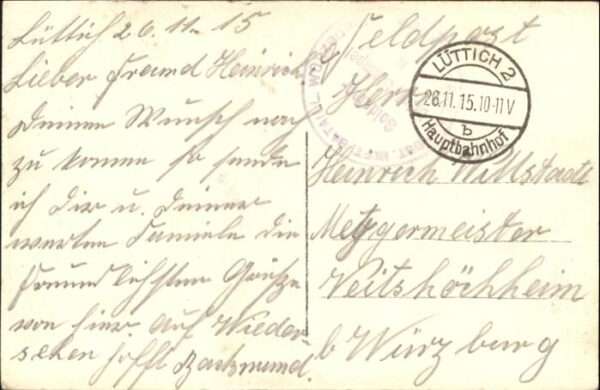 Lüttich 26.11.15
Lieber Freund Heinrich
Deinen Wunsch nach
zu komen so sende
ich Dir u. Deiner
werten Familie die
freundlichsten Grüße
von hier. auf Wieder-
sehen hofft
Feldpost
Herrn
Heinrich Willstadt
Metzgermeister
Veitshöchheim
b Würzburg
LÜTTICH 2
26.11.15.10-11V
b
Hauptbahnhof